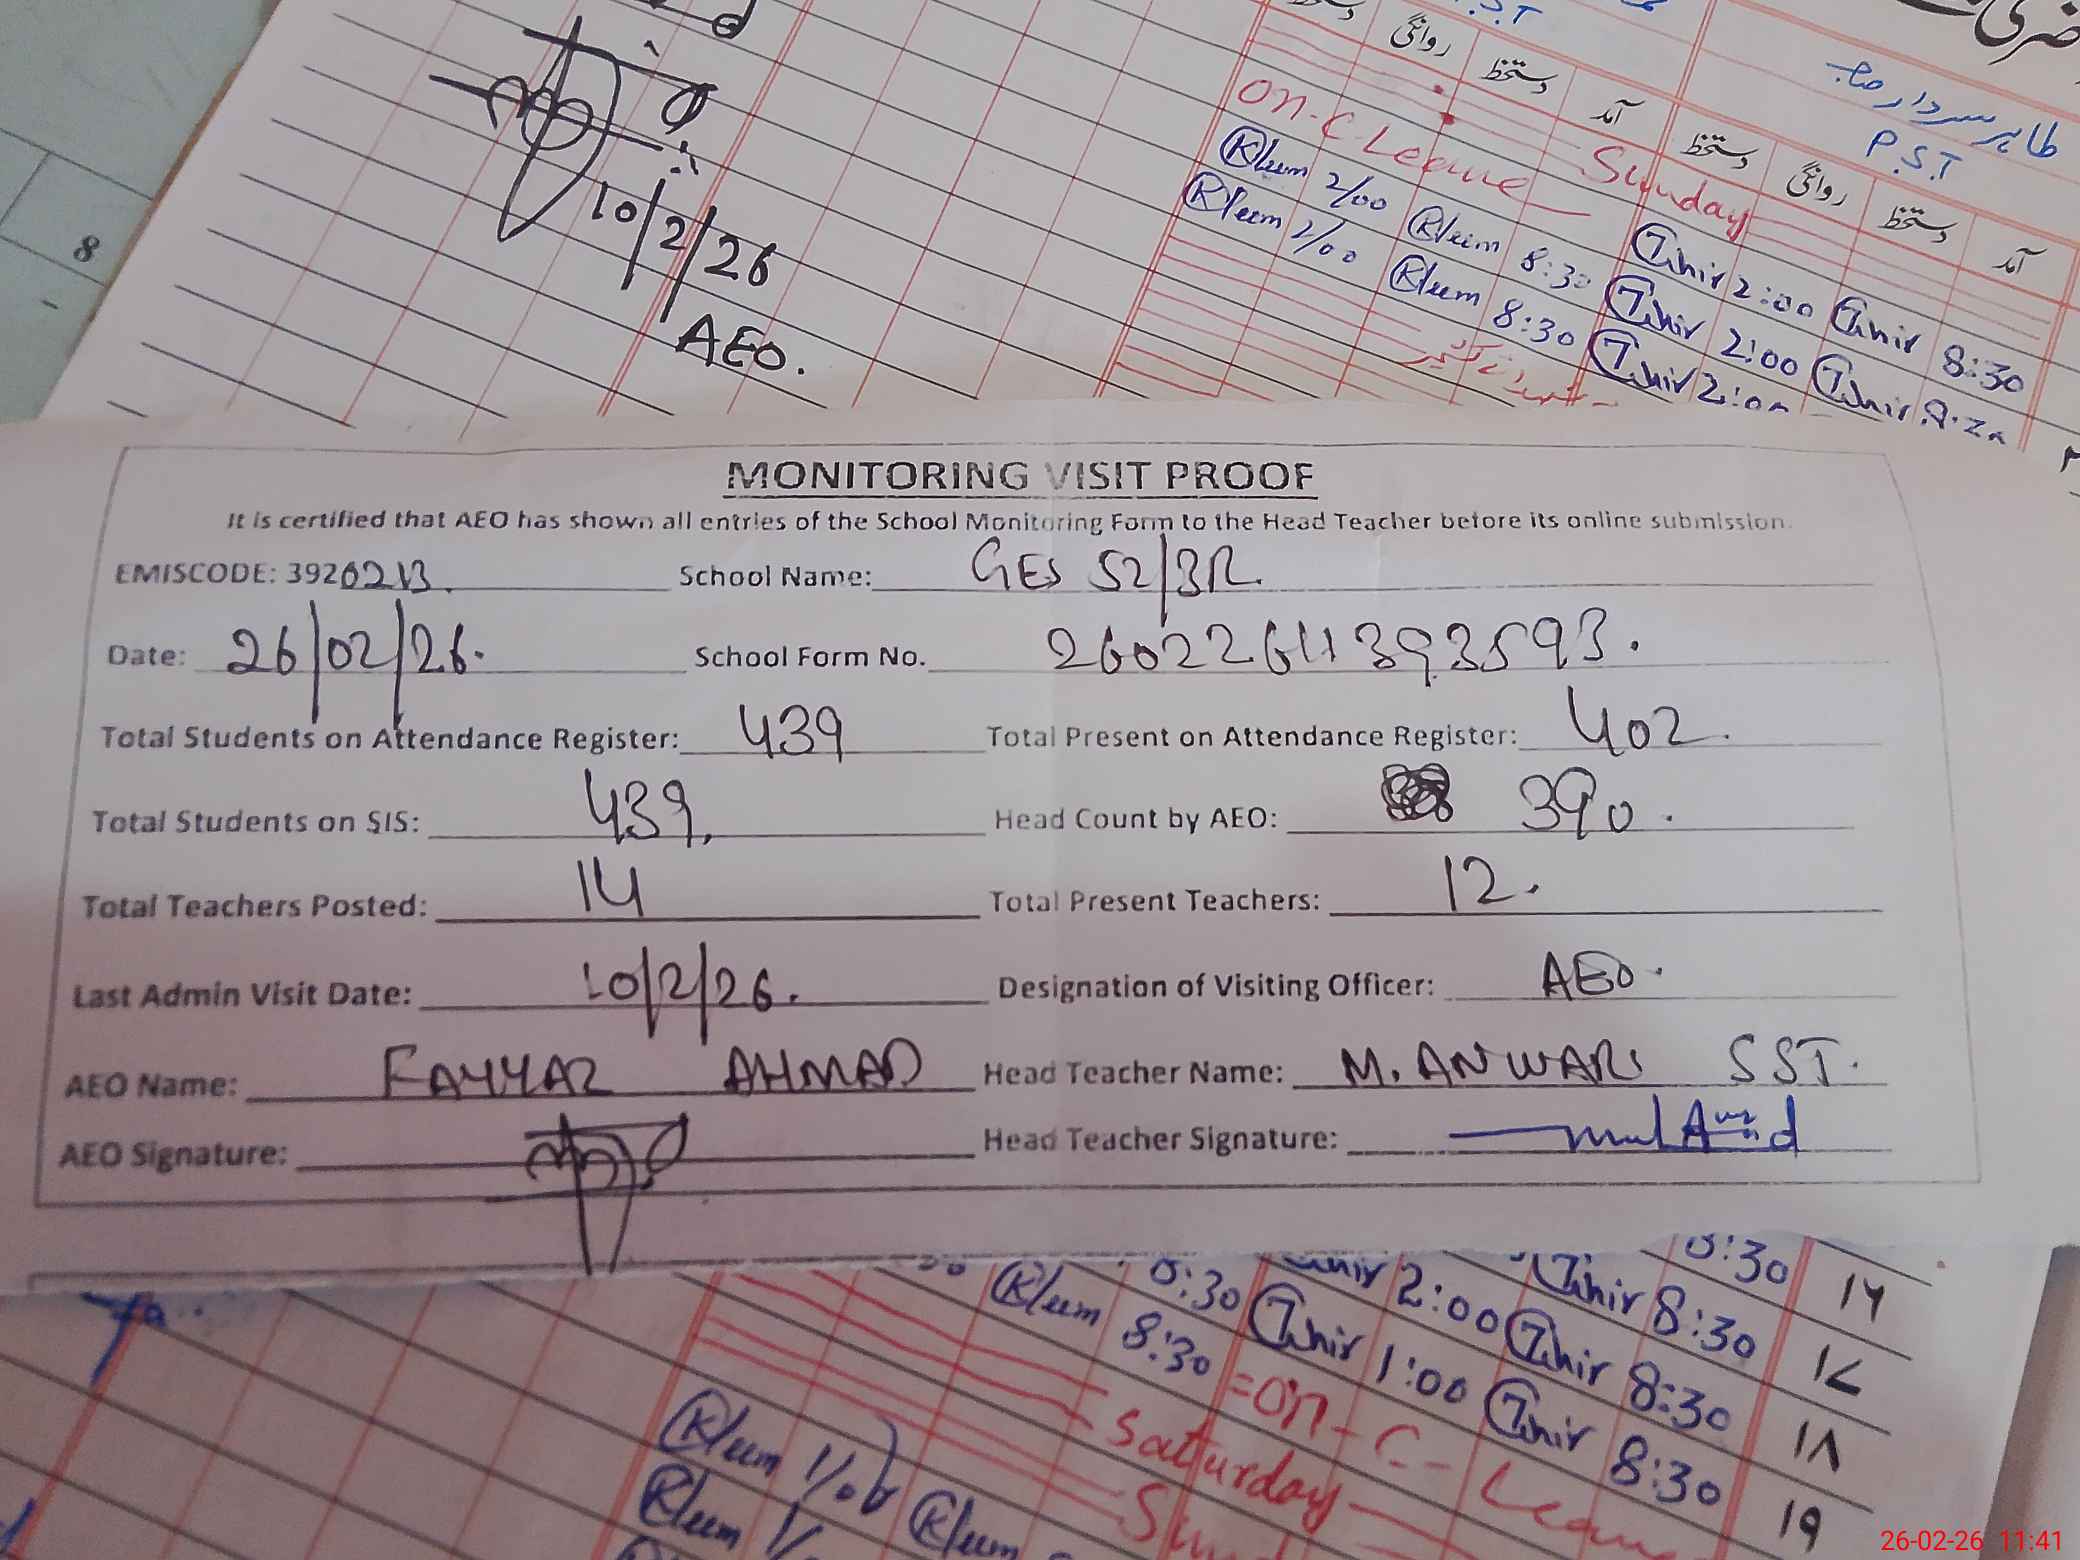 10/2/26
AEO.
8
P.S.T
روانگی دستخط آمد دستخط روانگی دستخط آمد
طاہر سردار صاحب
P.S.T
on-C-Leave Sunday
Kleem 2/00 Kleem 8:30 Tahir 2:00 Tahir 8:30
Kleem 2/00 Kleem 8:30 Tahir 2:00 Tahir
Tahir 2:00
MONITORING VISIT PROOF
It is certified that AEO has shown all entries of the School Monitoring Form to the Head Teacher before its online submission.
EMISCODE: 3920213. School Name: GES 52/3R.
Date: 26/02/26. School Form No. 26022611393593.
Total Students on Attendance Register: 439 Total Present on Attendance Register: 402.
Total Students on SIS: 439. Head Count by AEO: 390.
Total Teachers Posted: 14 Total Present Teachers: 12.
Last Admin Visit Date: 10/2/26. Designation of Visiting Officer: AEO.
AEO Name: FAYYAZ AHMAD Head Teacher Name: M. ANWAR SST.
AEO Signature: Head Teacher Signature:
8:30 ۱۶
8:30 Tahir 2:00 Tahir 8:30 ۱۷
Kleem 8:30 Tahir 1:00 Tahir 8:30 ۱۸
=on-C-Leave Tahir 8:30 ۱۹
Saturday
Kleem 1/00 Kleem
Kleem
26-02-26 11:41